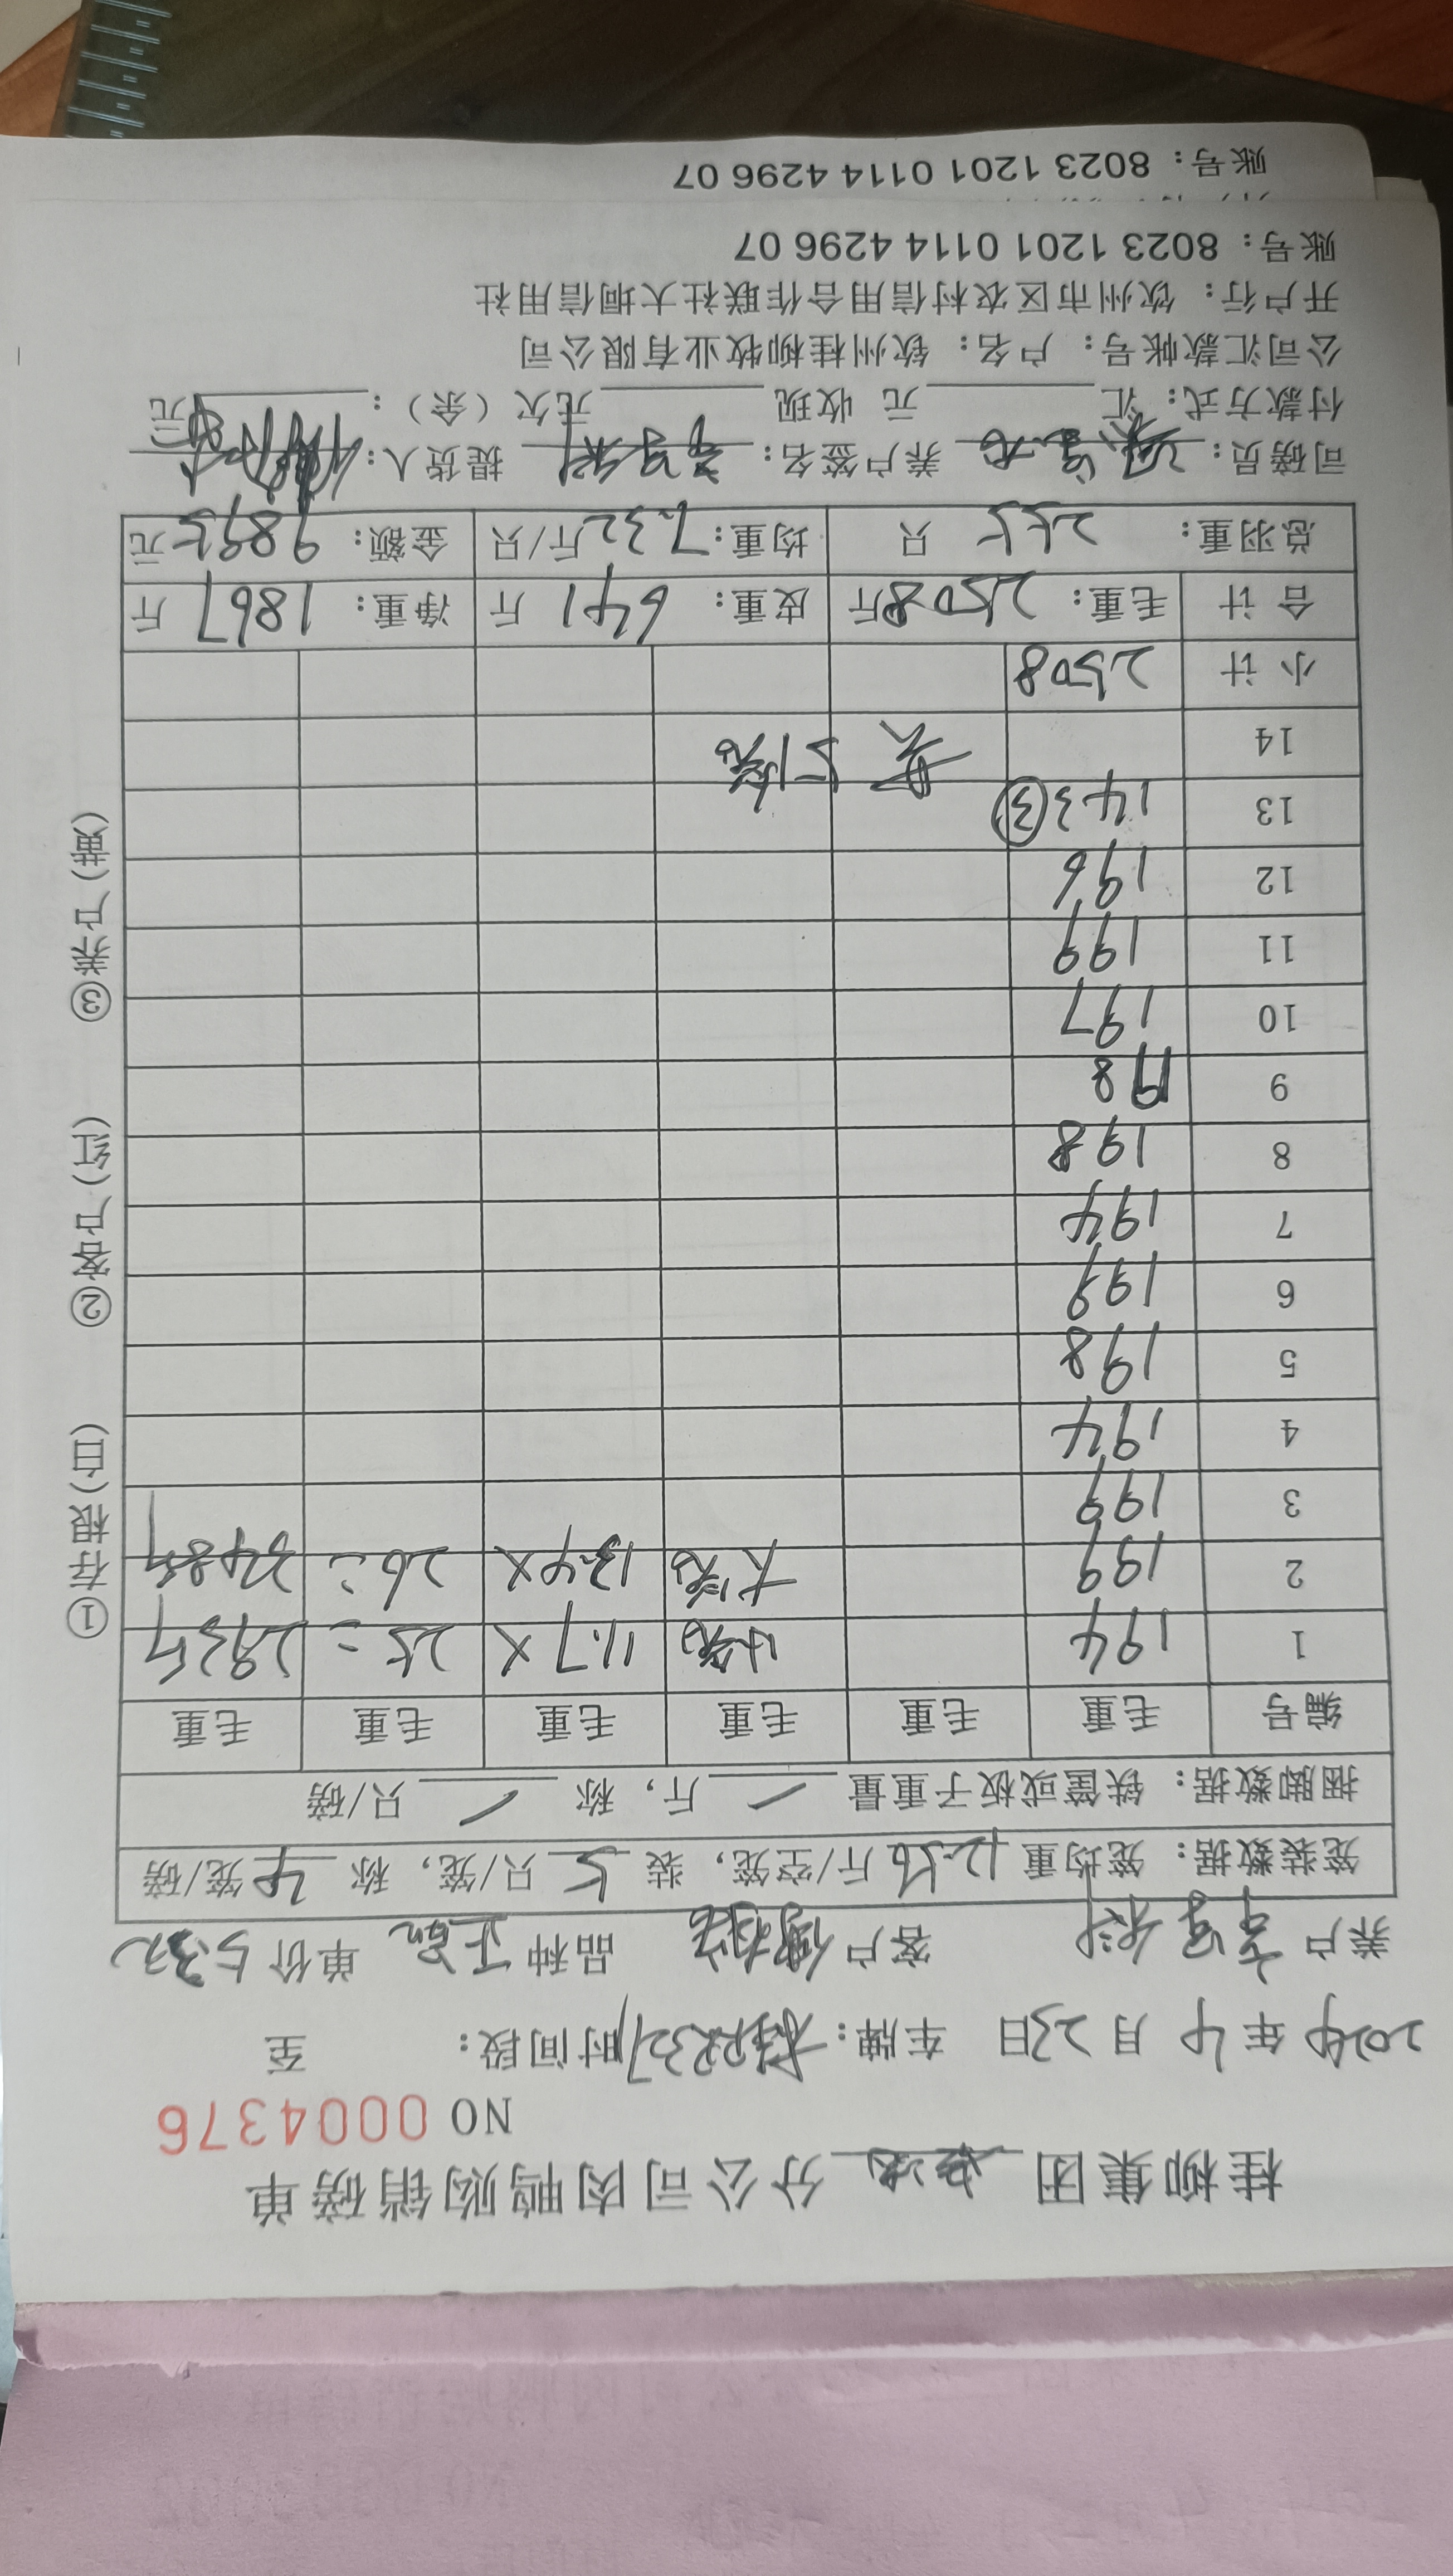 桂柳集团 分公司肉鸭购销磅单
NO 0004376
2024年4月23日 车牌: 时间段: 至
养户 客户 品种 正品 单价 5.30
笼装数据: 笼均重12.56斤/空笼, 装5只/笼, 称4笼/磅
捆脚数据: 铁筐或板子重量 / 斤, 称 / 只/磅
编号 毛重 毛重 毛重 毛重 毛重 毛重
1 194 小笼 11.7× 25= 293斤
2 199 大笼 13.4× 26= 348斤
3 199
4 194
5 198
6 199
7 194
8 198
9 198
10 197
11 199
12 196
13 143 ③
14 共51笼
小计 2508
合计 毛重: 2508斤 皮重: 641斤 净重: 1867斤
总羽重: 255只 均重: 7.32斤/只 金额: 9895元
司磅员: 养户签名: 提货人:
付款方式: 汇 元 收现 元欠(余): 元
公司汇款帐号: 户名: 钦州桂柳牧业有限公司
开户行: 钦州市区农村信用合作联社大垌信用社
账号: 8023 1201 0114 4296 07
账号: 8023 1201 0114 4296 07
①存根(白) ②客户(红) ③养户(黄)